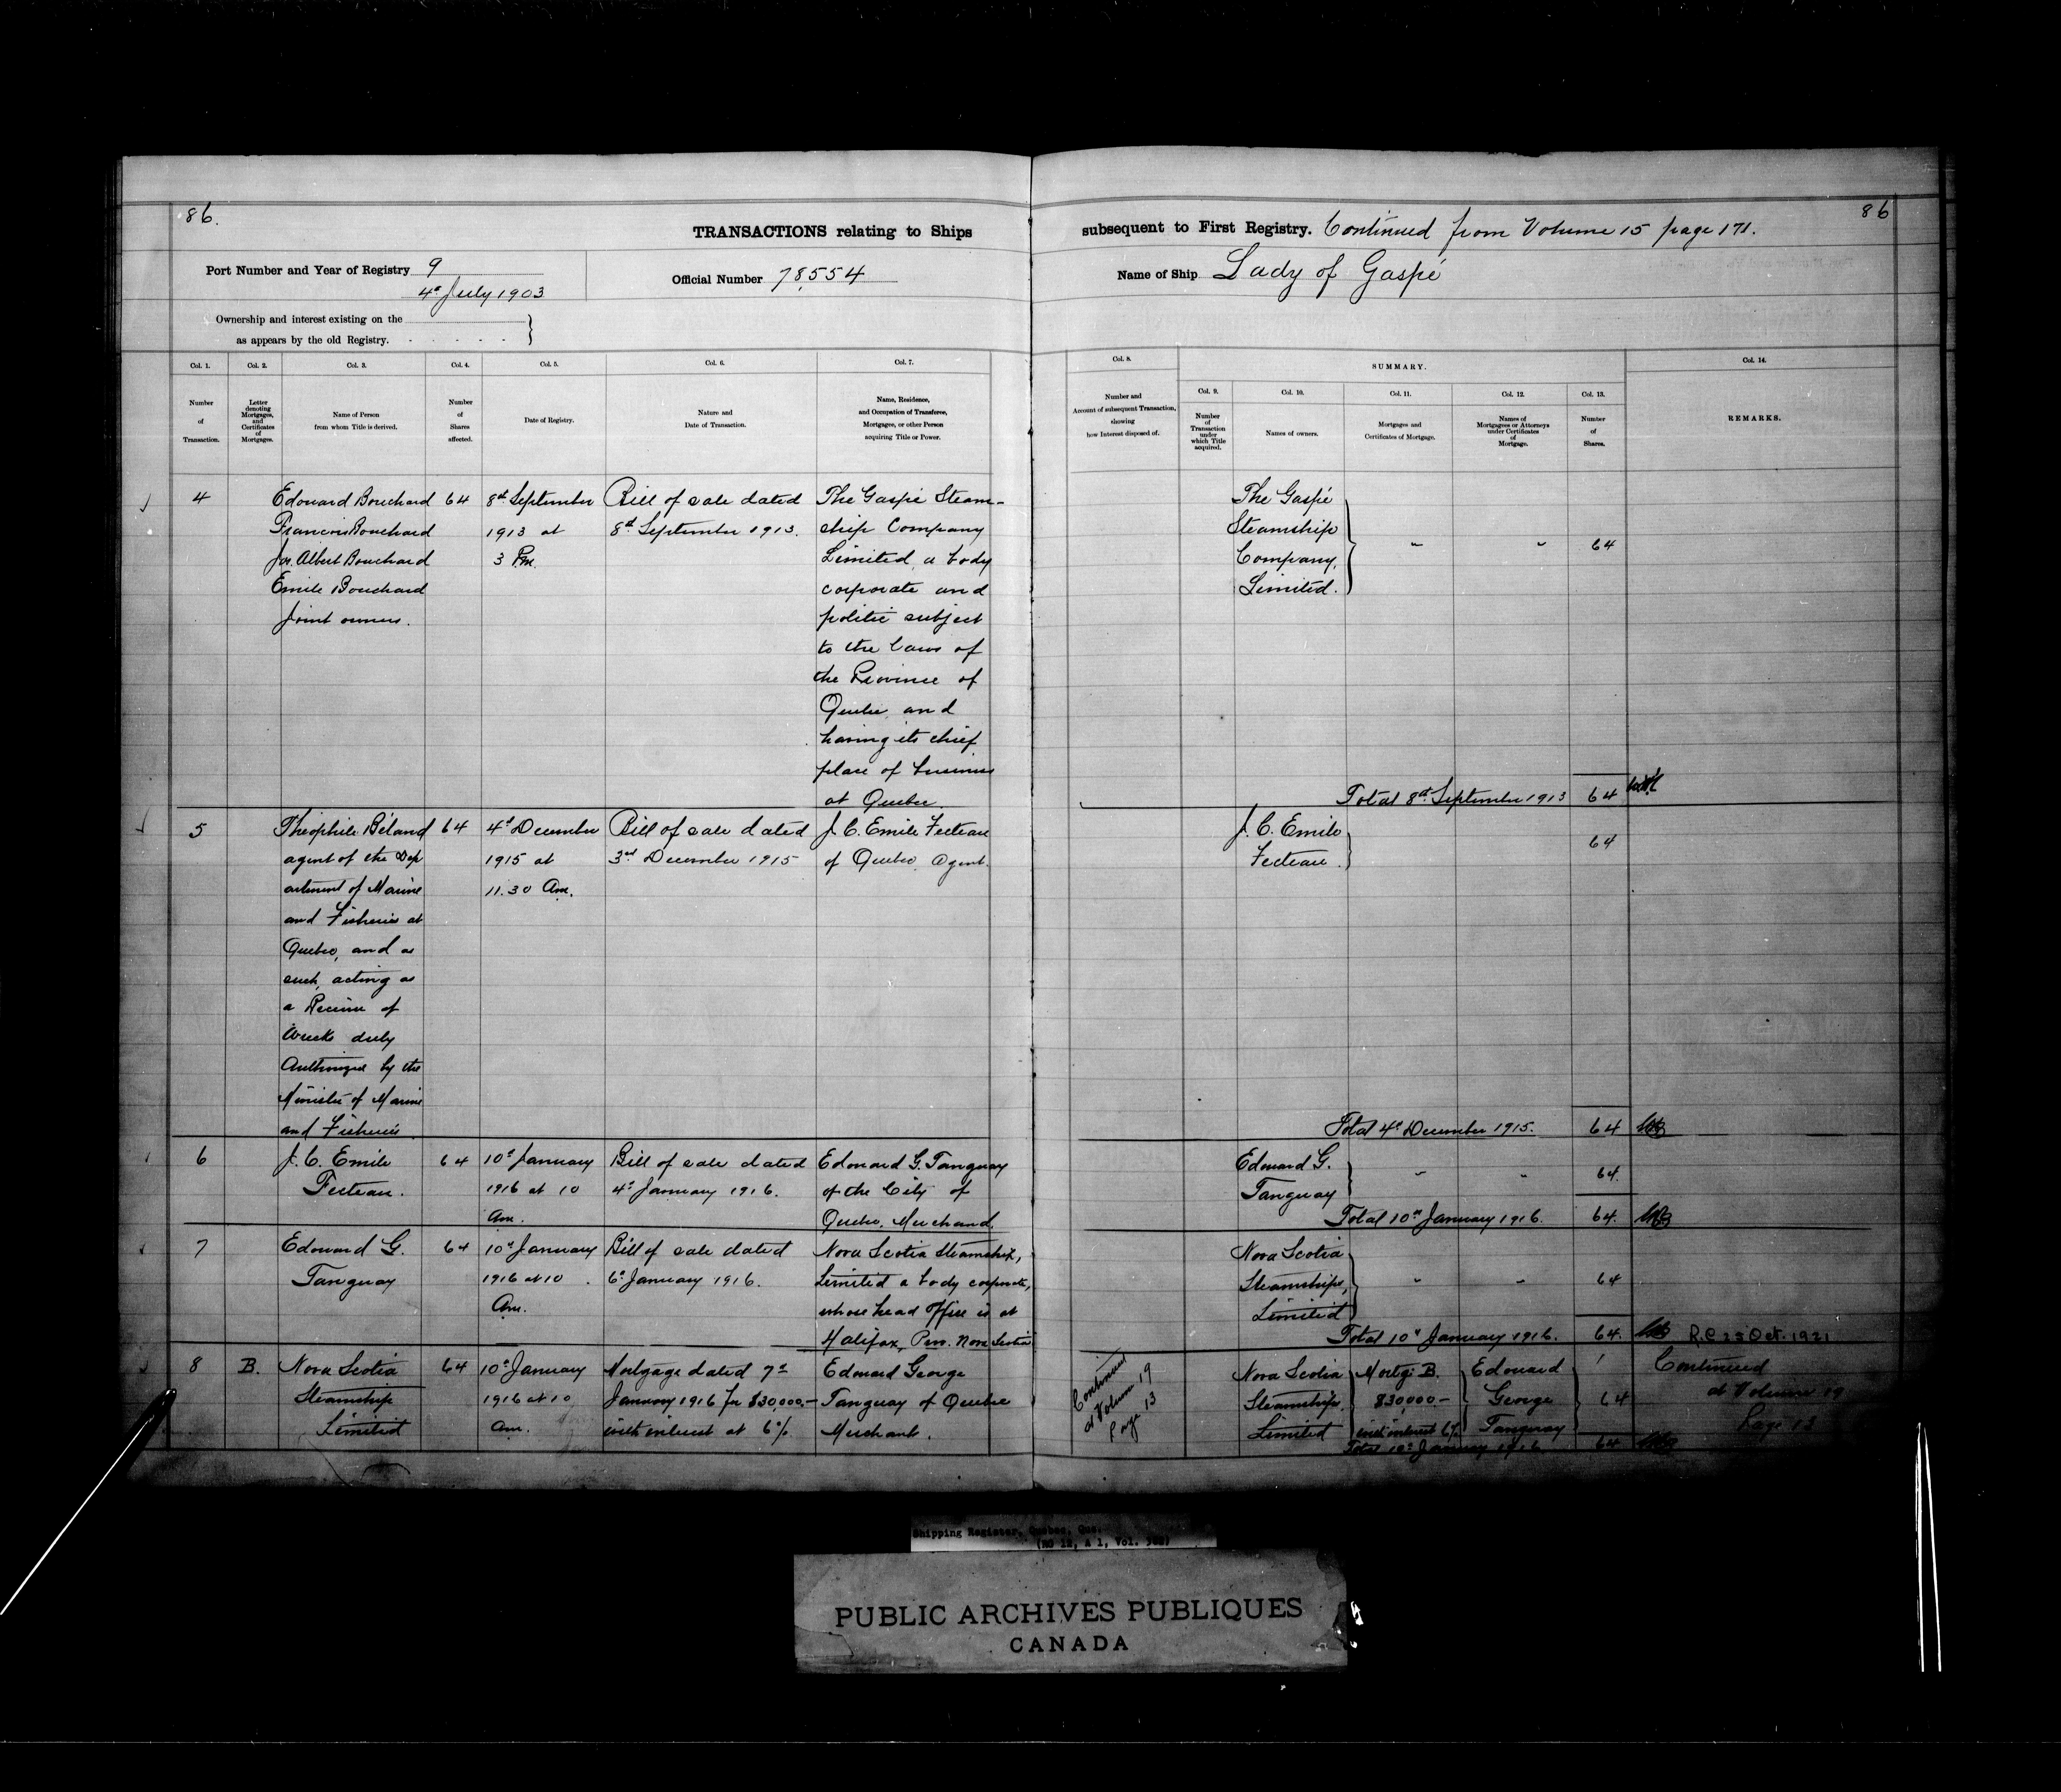 86.
86
TRANSACTIONS relating to Ships subsequent to First Registry. Continued from Volume 15 page 171.
Port Number and Year of Registry 9
4th July 1903
Official Number 78,554
Name of Ship Lady of Gaspé
Ownership and interest existing on the
as appears by the old Registry.
Col. 1.
Number
of
Transaction.
Col. 2.
Letter
denoting
Mortgages,
and
Certificates
of
Mortgages.
Col. 3.
Name of Person
from whom Title is derived.
Col. 4.
Number
of
Shares
affected.
Col. 5.
Date of Registry.
Col. 6.
Nature and
Date of Transaction.
Col. 7.
Name, Residence,
and Occupation of Transferee,
Mortgagee, or other Person
acquiring Title or Power.
Col. 8.
Number and
Account of subsequent Transaction,
showing
how Interest disposed of.
SUMMARY.
Col. 9.
Number
of
Transaction
under
which Title
acquired.
Col. 10.
Names of owners.
Col. 11.
Mortgages and
Certificates of Mortgage.
Col. 12.
Names of
Mortgagees or Attorneys
under Certificates
of
Mortgage.
Col. 13.
Number
of
Shares.
Col. 14.
REMARKS.
4
Edouard Bouchard
Francois Bouchard
Jos. Albert Bouchard
Emile Bouchard
Joint owners.
64
8th September
1913 at
3 Pm.
Bill of sale dated
8th September 1913.
The Gaspé Steam-
ship Company
Limited, a body
corporate and
politic subject
to the laws of
the Province of
Quebec, and
having its chief
place of business
at Quebec.
The Gaspé
Steamship
Company,
Limited.
" " 64
Total 8th September 1913 64
5
Theophile Béland
agent of the Dep
artment of Marine
and Fisheries at
Quebec, and as
such, acting as
a Receiver of
Wrecks duly
Authorized by the
Minister of Marine
and Fisheries
64
4th December
1915 at
11.30 Am.
Bill of sale dated
3rd December 1915
J. C. Emile Fecteau
of Quebec, Agent.
J. C. Emile
Fecteau.
64
Total 4th December 1915. 64
6
J. C. Emile
Fecteau.
64
10th January
1916 at 10
Am.
Bill of sale dated
4th January 1916.
Edouard G. Tanguay
of the City of
Quebec, Merchand.
Edouard G.
Tanguay
" " 64.
Total 10th January 1916. 64.
7
Edouard G.
Tanguay
64
10th January
1916 at 10
Am.
Bill of sale dated
6th January 1916.
Nova Scotia Steamships,
Limited a body corporate,
whose head office is at
Halifax, Prov. Nova Scotia
Nova Scotia
Steamships,
Limited
" " 64
Total 10th January 1916. 64.
R.C 25 Oct. 1921
8
B.
Nova Scotia
Steamship
Limited
64
10th January
1916 at 10
Am.
Mortgage dated 7th
January 1916 for $30,000.-
with interest at 6%
Edouard George
Tanguay of Quebec
Merchant.
Continued
at Volume 19
Page 13
Nova Scotia
Steamships,
Limited
Mortge B.
$30,000-
with interest 6%
Edouard
George
Tanguay
64
Total 10th January 1916 64
Continued
at Volume 19
Page 13
Shipping Register, Quebec, Que.
PUBLIC ARCHIVES PUBLIQUES
CANADA